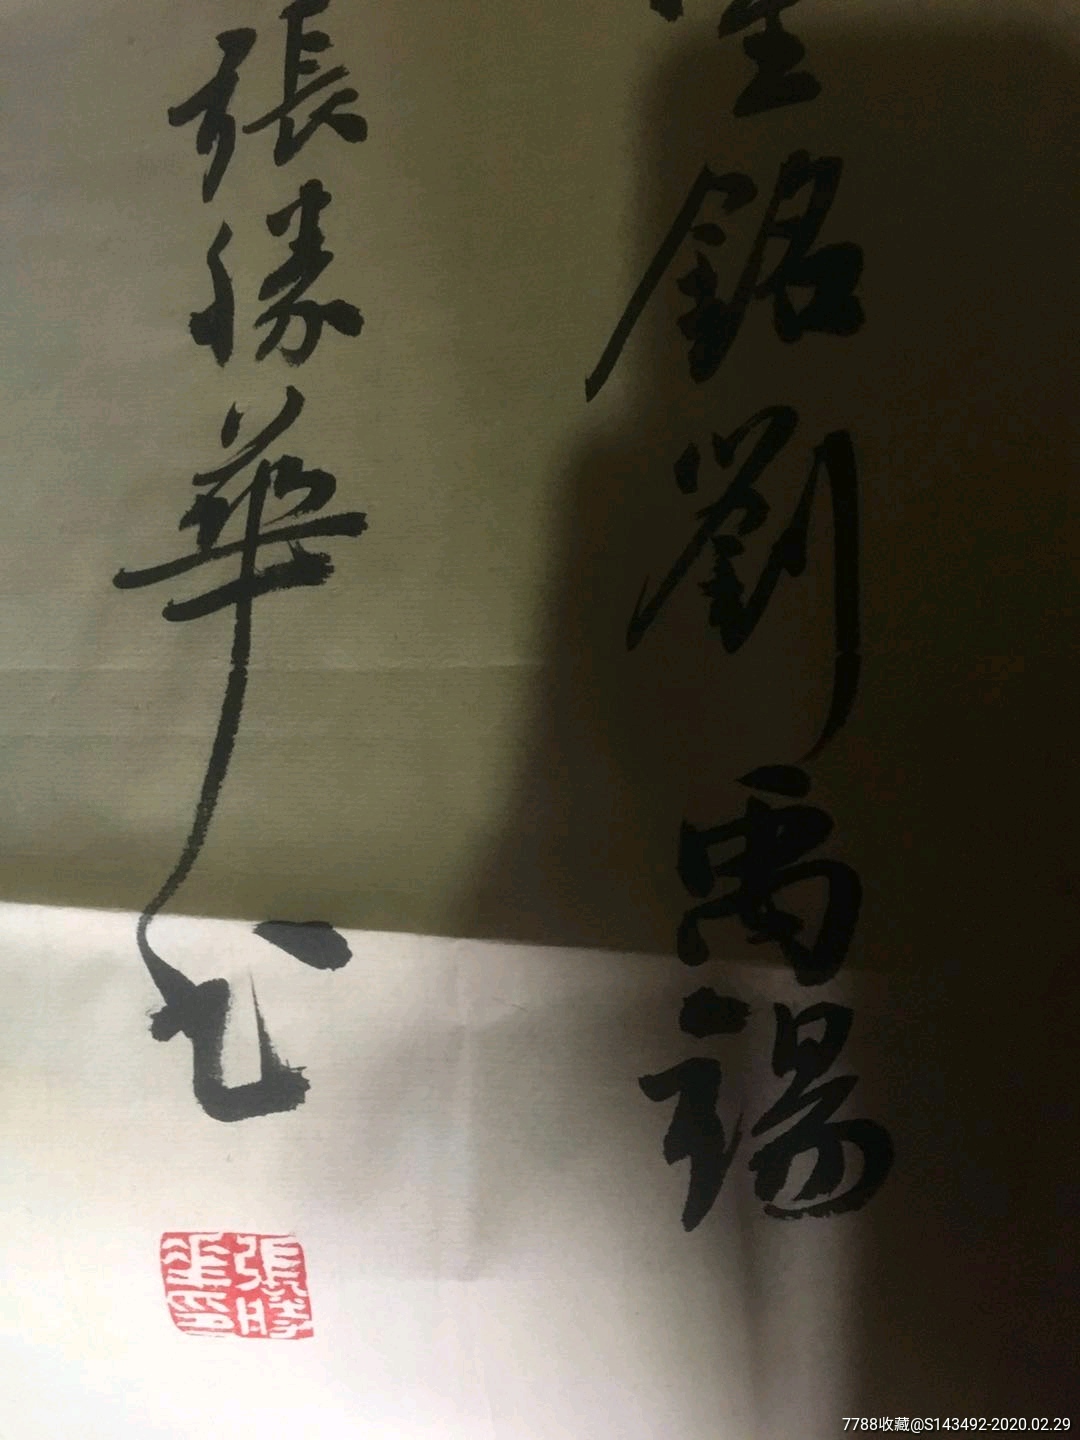 室銘劉禹錫
張勝華书
張
華印
7788收藏@S143492-2020.02.29